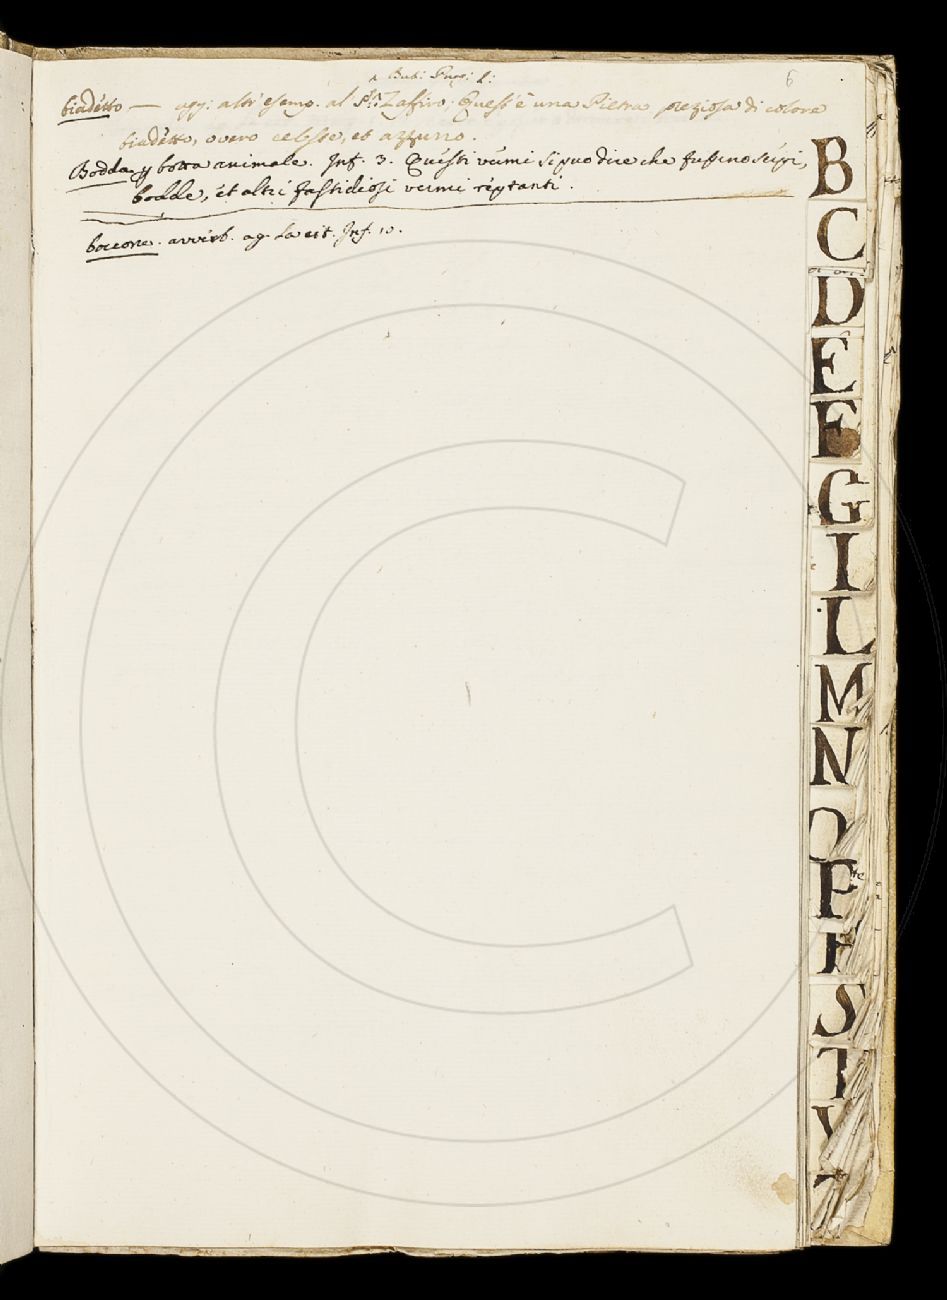 6
biadetto — agg: altri esemp. al Zaffiro; Quest' è una Pietra preziosa di colore
biadetto, overo celeste, et azzurro.
Bodda p botta animale. Inf. 3. Questi vermi si può dire che fussino
bodde, et altri fastidiosi vermi reptanti.
boccone. avverb. ag. La cit. Inf. 10.
B
C
D
E
F
G
I
L
M
N
O
P
S
T
V